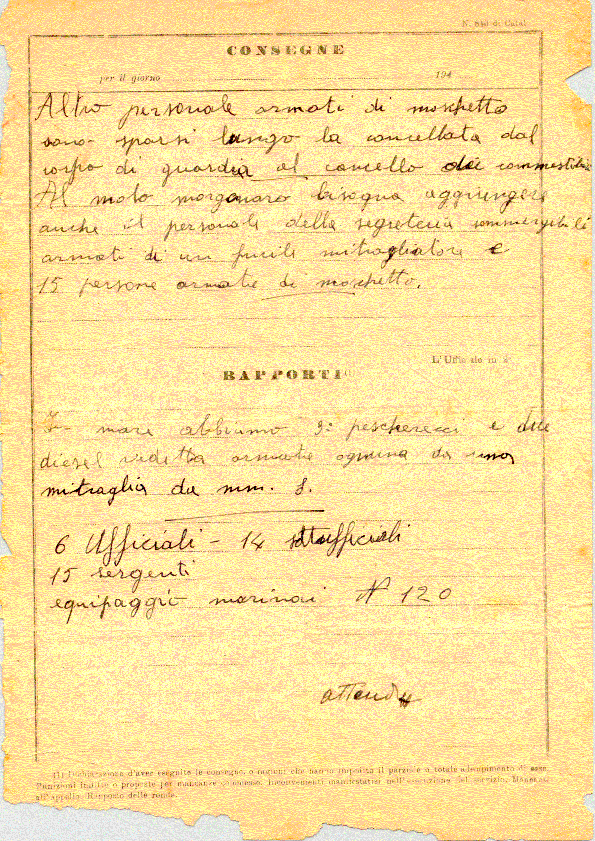 CONSEGNE
per il giorno 194
Altro personale armati di moschetto
sono sparsi lungo la cancellata dal
corpo di guardia al cancello dei commestibili
Al molo morgonaro bisogna aggiungere
anche il personale della segreteria sommergibili
armati di un fucile mitragliatore e
15 persone armate di moschetto.
RAPPORTI
mare abbiamo 3: pescherecci e due
diesel vedetta armate ognuna da una
mitraglia da mm. 8.
6 Ufficiali - 14 sottufficiali
15 sergenti
equipaggio marinai N 120
(1) Dichiarazione d'aver eseguito le consegne, o ragioni che hanno impedito il parziale o totale adempimento di esse.
Punizioni inflitte o proposte per mancanze commesse. Inconvenienti manifestatisi nell'esecuzione del servizio. Mancanti
all'appello. Risposto delle ronde.